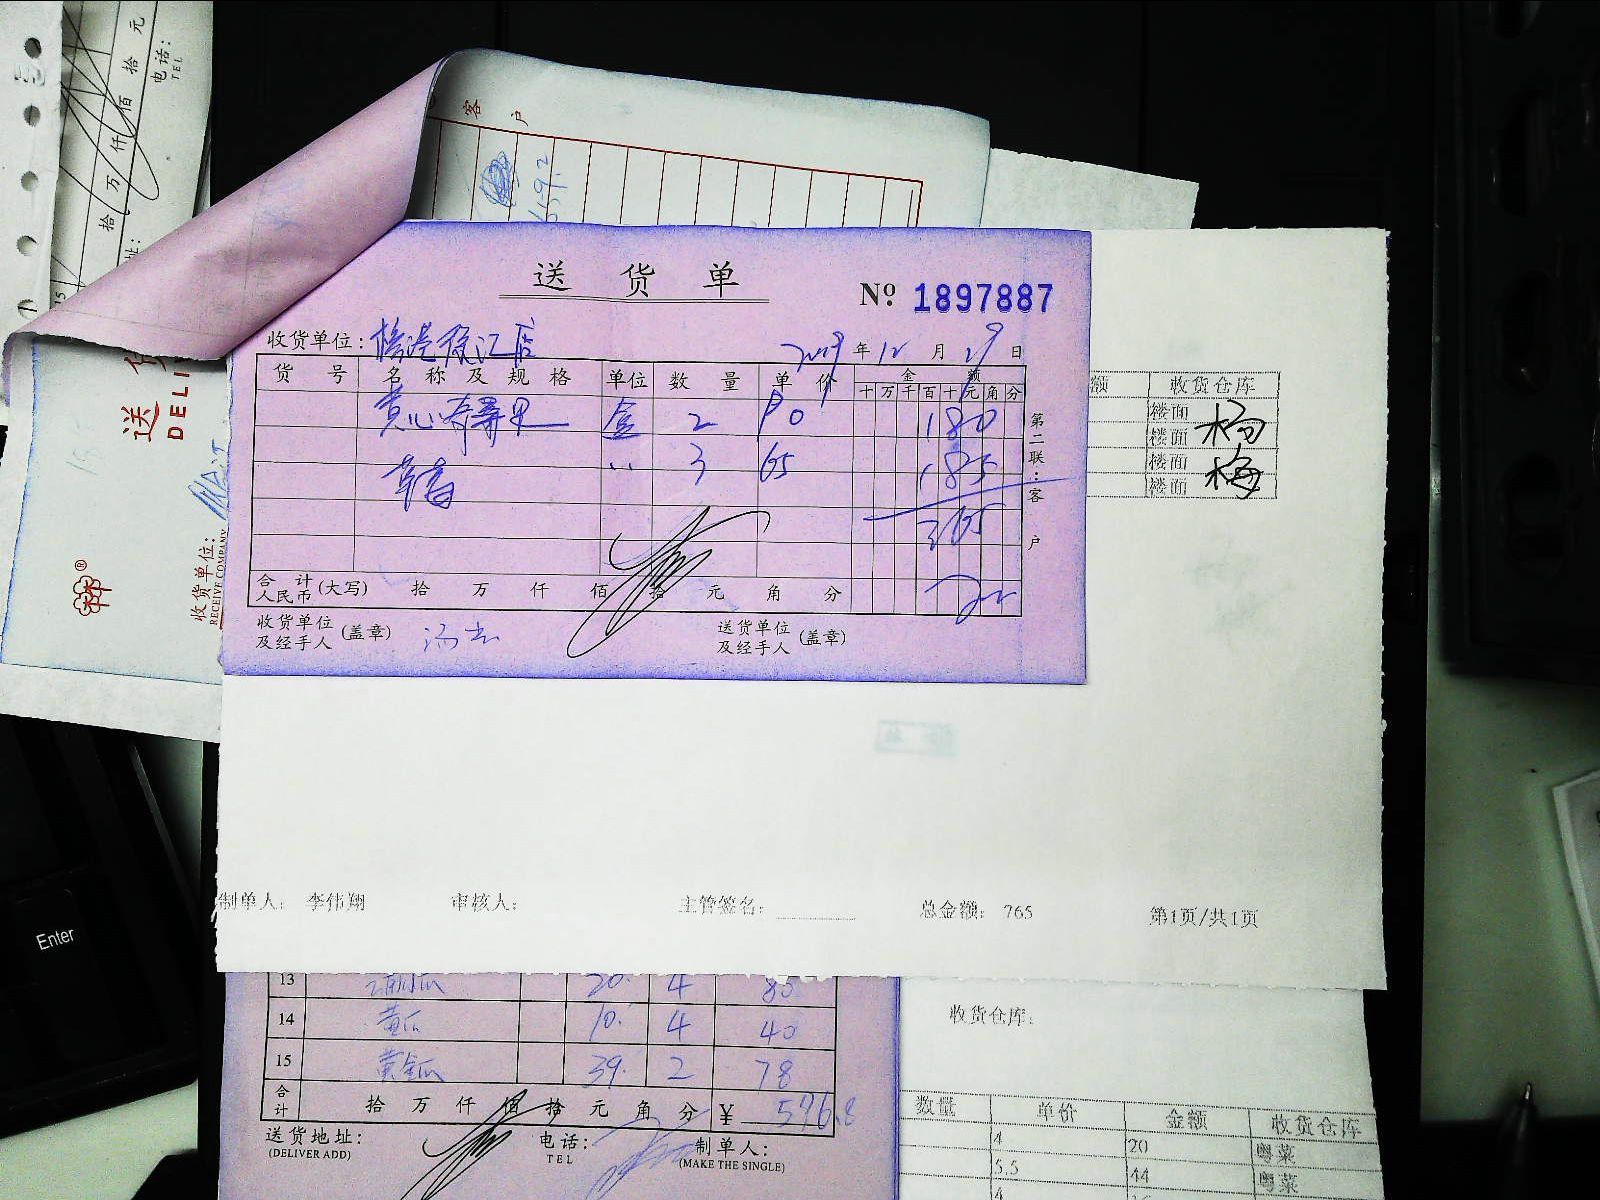 拾 万 仟 佰 拾 元
电话:
TEL
客户
159.2
送 货 单
№ 1897887
收货单位: 徐汇店
2019 年 12 月 29 日
货 号 名 称 及 规 格 单位 数 量 单 价 金 额
十 万 千 百 十 元 角 分
盒 2 90 180
〃 3 65 185
365
第二联:客户
合 计
人民币 (大写) 拾 万 仟 佰 拾 元 角 分
收货单位
及经手人 (盖章)
送货单位
及经手人 (盖章)
送
DELI
收货单位:
RECEIVE COMPANY
额 收货仓库
楼面
楼面 杨
楼面
楼面 梅
制单人: 李伟翔 审核人: 主管签名: 总金额: 765 第1页/共1页
13 20. 4 80
14 黄瓜 10. 4 40
15 黄金瓜 39. 2 78
合计 拾 万 仟 佰 拾 元 角 分 ¥ 576.8
送货地址: 电话: 制单人:
(DELIVER ADD) TEL (MAKE THE SINGLE)
收货仓库:
数量 单价 金额 收货仓库
4 20 粤菜
5.5 44 粤菜
4
Enter